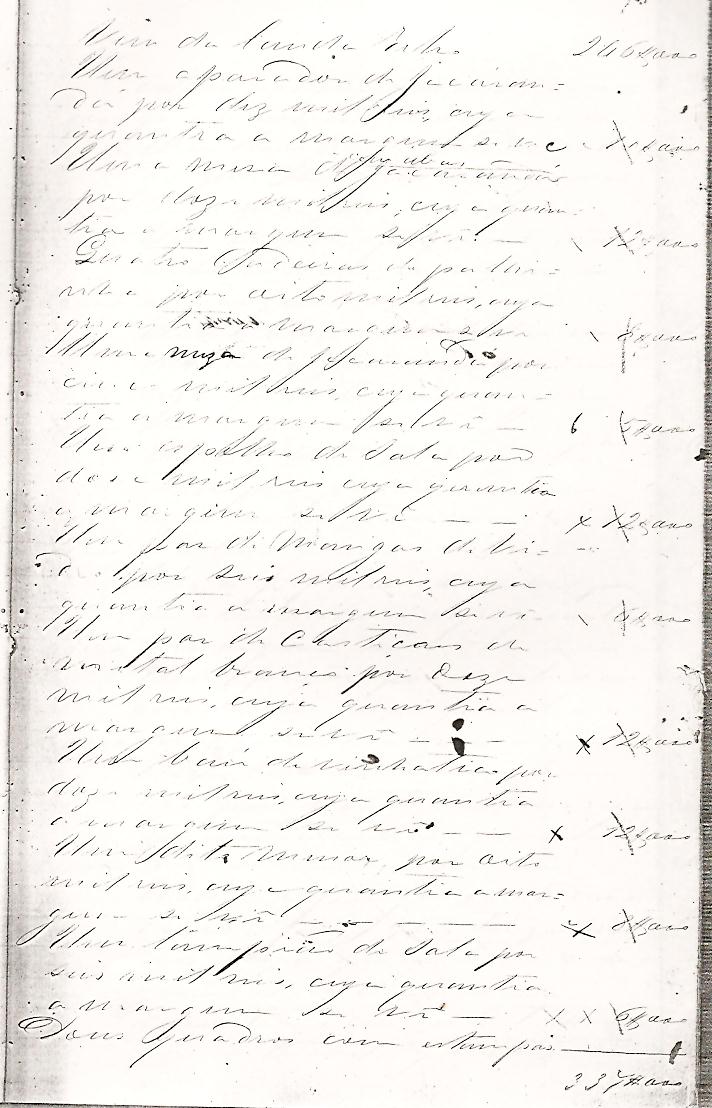 Vem da lauda 246$000
Um aparador de jacaran=
dá por dez mil reis, cuja
quantia a margem se vê 10$000
Uma mesa de jacarandá
por doze mil reis, cuja quan-
tia a margem se vê — 12$000
Quatro Cadeiras de palhi-
nha por oito mil reis, cuja
quantia a margem se vê 8$000
Uma meza de Jacarandá por
cinco mil reis, cuja quan-
tia a margem se vê — 5$000
Um espelho de Sala por
doze mil reis cuja quantia
a margem se vê — — X 12$000
Um par de Mangas de vi-
dro por seis mil reis, cuja
quantia a margem se vê 6$000
Um par de Castiçaes de
metal branco por doze
mil reis, cuja quantia a
margem se vê — — X 12$000
Um baú de vinhatico por
doze mil reis, cuja quantia
a margem se vê — — X 12$000
Um dito menor, por oito
mil reis, cuja quantia a mar=
gem se vê — — X 8$000
Um lampião de Sala por
seis mil reis, cuja quantia
a margem se vê — X X 6$000
Dous quadros com estampas
337$000